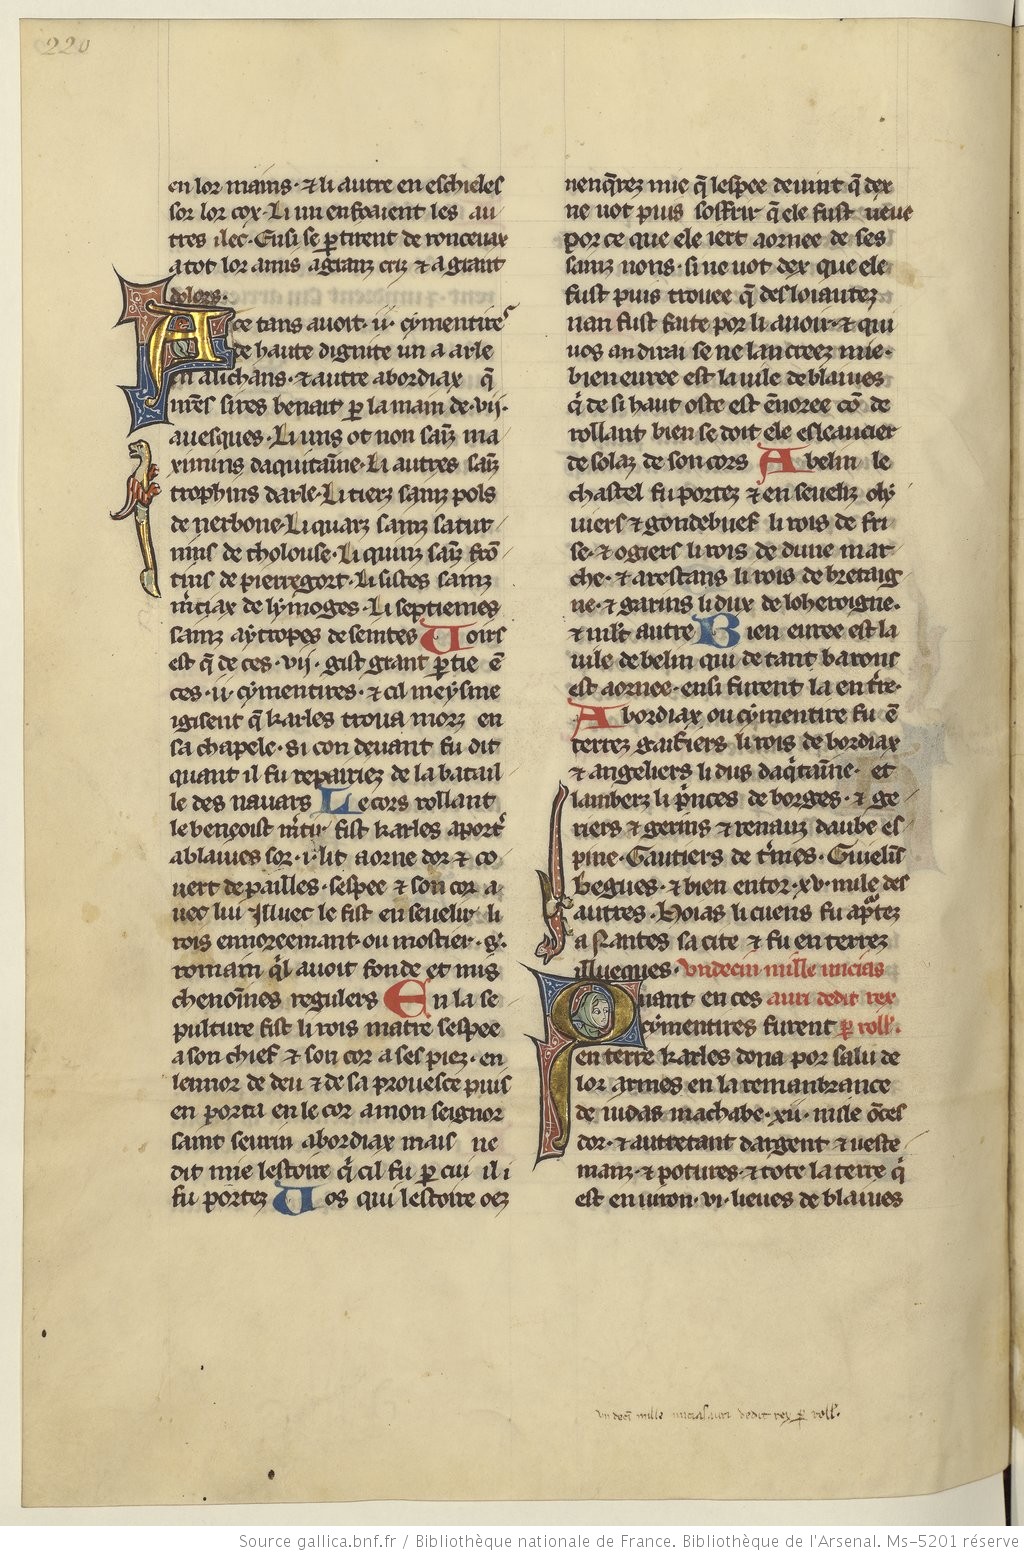 220
en lor mains· ⁊ li autre en eschieles
sor lor cox· Li un enfoaient les au
tres ilec· Ensi se ꝑtirent de ronceuax
a tot lor amis a granz criz ⁊ a grant
dolors·
A ce tans auoit ·ii· cymentires
de haute dignite un a arle
en alichans· ⁊ autre a bordiax q̃
nr̃es sires beneit ꝑ la main de ·vii·
auesques· Li uns ot non saīz ma
ximins daquitaine· Li autres saīz
trophins darle· Li tierz sainz pols
de nerbone· Li quarz sainz satur
nins de tholouse· Li quinz saīz frō
tins de pierregort· Li sistes sainz
m̃ciax de lymoges· Li septiemes
sainz aytropes de seintes Voirs
est q̃ de ces ·vii· gist grant ꝑtie ē
ces ·ii· cymentires· ⁊ cil meysme
i gisent q̃ karles troua morz en
sa chapele· si con deuant fu dit
quant il fu repairiez de la batail
le des nauars Le cors rollant
le benoist m̃tir fist karles aport̃
a blaiues sor ·i· lit aorne dor ⁊ co
uert de pailles· sespee ⁊ son cor a
uec lui ⁊ illuec le fist enseuelir li
rois ennoreemant· ou mostier · s̃·
romain q̃l auoit fonde et mis
chenoines regulers En la se
pulture fist li rois matre sespee
a son chief ⁊ son cor a ses piez· en
lennor de deu ⁊ de sa prouesce puis
en porta en le cor a mon seignor
saint seurin a bordiax mais ne
dit mie lestoire q̃ cil fu ꝑ cui il i
fu portez Vos qui lestoire oez
nenq̃rez mie q̃ lespee deuint q̃ dex
ne uot puis soffrir q̃ ele fust ueue
por ce que ele iert aornee de ses
sainz nons· si ne uot dex que ele
fust puis trouee q̃ desloiautez
nan fust faite por li auoir· ⁊ qui
uos an dirai se ne lan creez mie·
bien euree est la uile de blaiues
q̃ de si haut oste est ēnoree cō de
rollant bien se doit ele esleaucier
de solaz de son cors A belin le
chastel fu portez ⁊ enseueliz oly
uiers ⁊ gondebuef li rois de fri
se· ⁊ ogiers li rois de dane mar
che· ⁊ arestans li rois de bretaig
ne· ⁊ garins li dux de loheroigne·
⁊ mlt̃ autre Bien euree est la
uile de belin qui de tant barons
est aornee· ensi furent la ent̃re·
A bordiax ou cymentire fu ē
terrez gaifiers li rois de bordiax
⁊ angeliers li dus daq̃taine· et
lamberz li p̃nces de borges· ⁊ ge
riers ⁊ gerins ⁊ renauz daube es
pine· Gautiers de t̃mes· Guielīs
begues· ⁊ bien entor ·xv· mile des
autres· Hoias li cuens fu ap̃tez
a nantes sa cite ⁊ fu enterrez
illueques· vndecim mille uncias
Quant en ces auri dedit rex
cymentires furent ꝑ roll̃·
en terre karles dona por salu de
lor armes en la remanbrance
de iudas machabe ·xii· mile ōces
dor· ⁊ autretant dargent ⁊ ueste
manz ⁊ potures ⁊ tote la terre q̃
est enuiron ·vi· lieues de blaiues
vndecī mille uncias auri dedit rex ꝑ roll̃·
Source gallica.bnf.fr / Bibliothèque nationale de France. Bibliothèque de l'Arsenal. Ms-5201 réserve